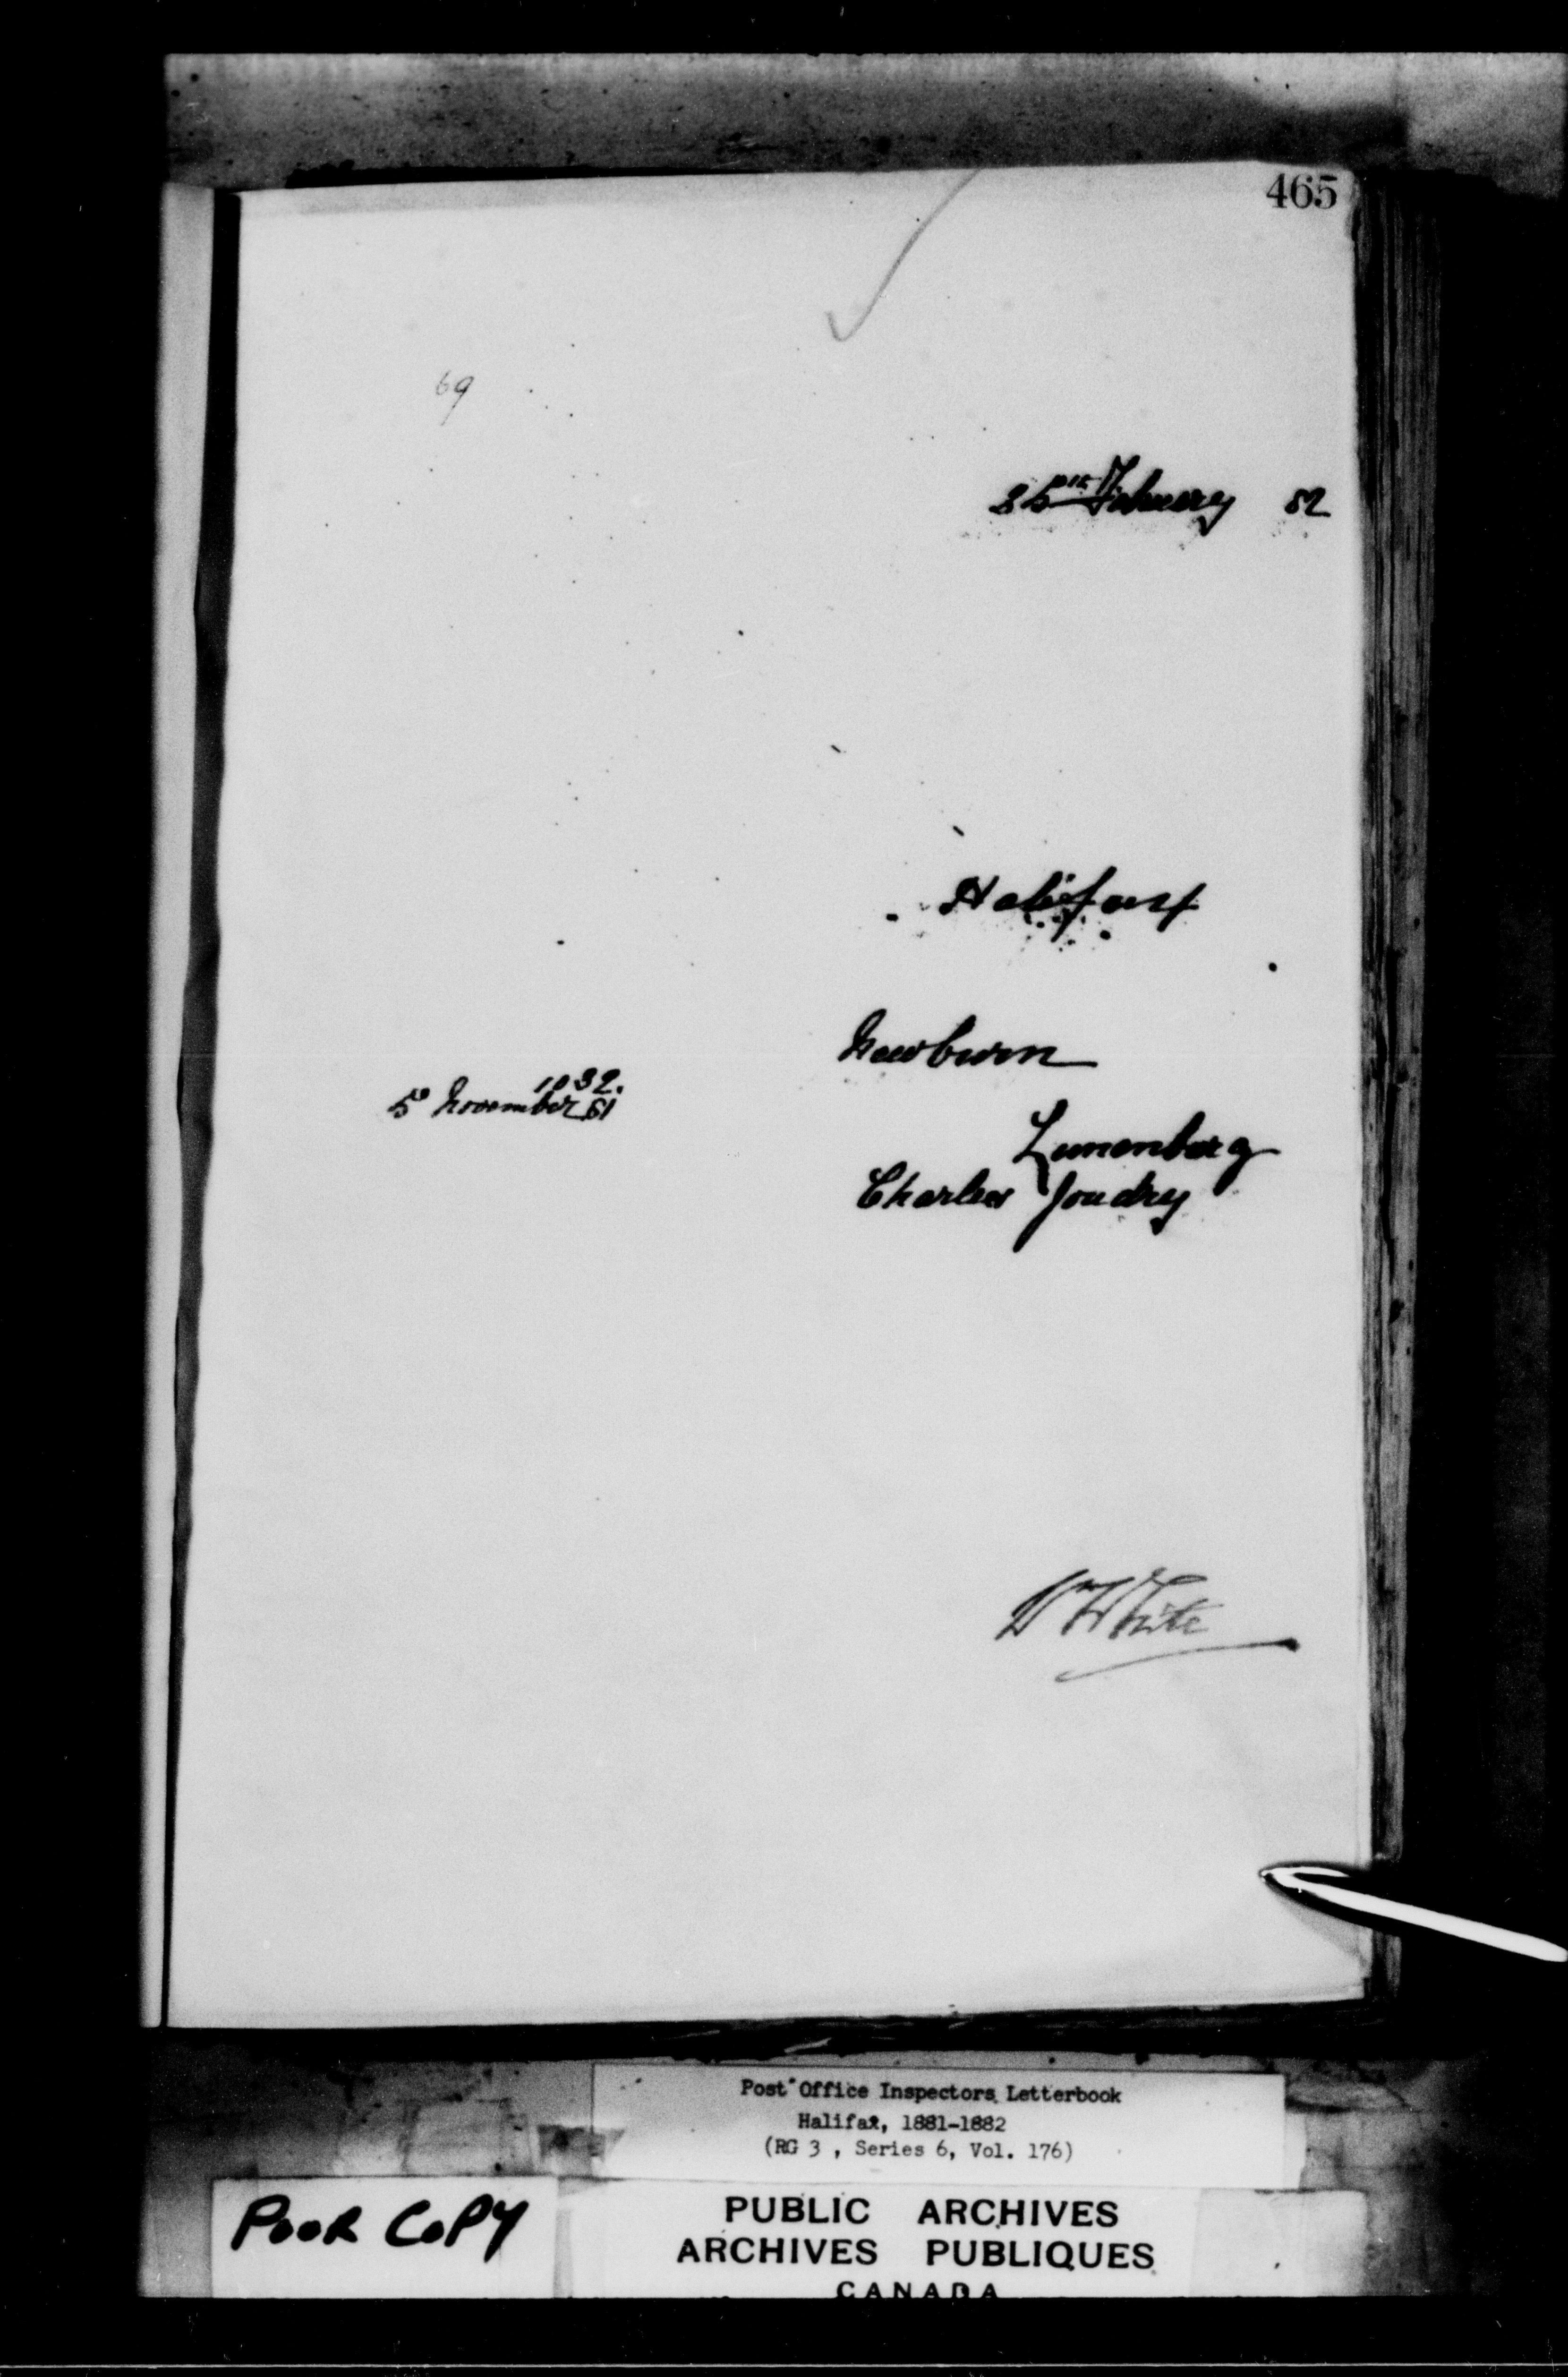 465
69
25 February 82
Halifax
Newburn
1032.
5 November 81
Lunenburg
Charles Joudry
White
Post Office Inspectors Letterbook
Halifax, 1881-1882
(RG 3 , Series 6, Vol. 176)
POOR COPY
PUBLIC ARCHIVES
ARCHIVES PUBLIQUES
CANADA